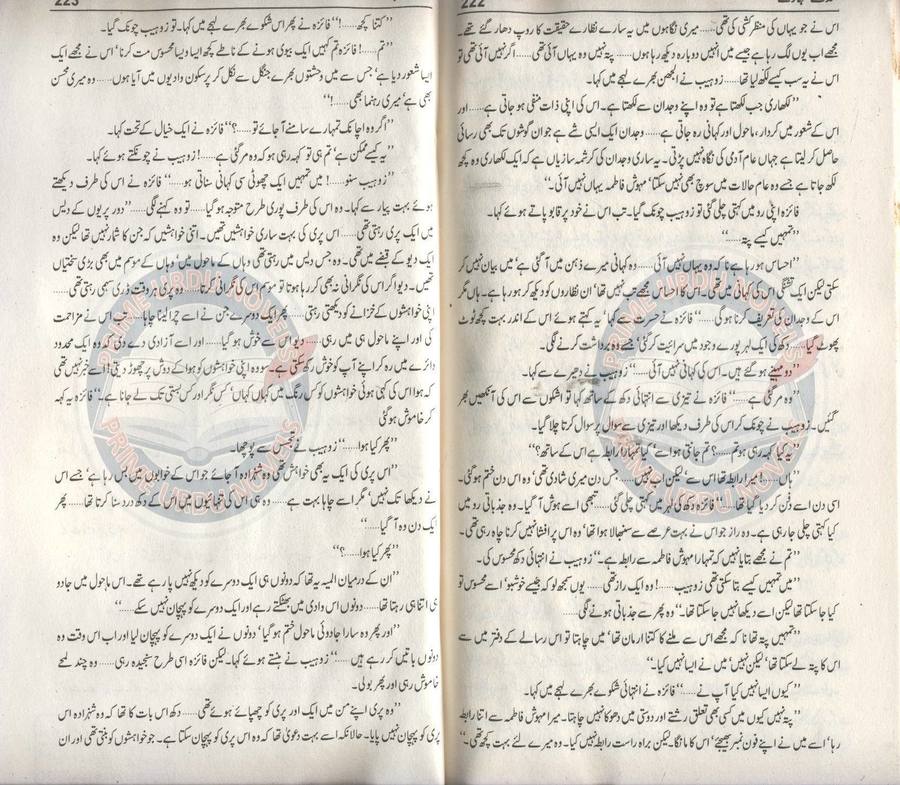 222
اس نے جو یہاں کی منظر کشی کی تھی...... میری نگاہوں میں یہ سارے نظارے حقیقت کا روپ دھار گئے تھے۔
مجھے اب یوں لگ رہا ہے جیسے میں انہیں دوبارہ دیکھ رہا ہوں...... پتہ نہیں وہ یہاں آئی تھی...... اگر نہیں آئی تھی تو
اس نے یہ سب کیسے لکھ لیا تھا...... زوہیب نے الجھن بھرے لہجے میں کہا۔
’’لکھاری جب لکھتا ہے تو وہ اپنے وجدان سے لکھتا ہے۔ اس کی اپنی ذات منفی ہو جاتی ہے...... اور
اس کے شعور میں کردار، ماحول اور کہانی رہ جاتی ہے...... وجدان ایک ایسی شے ہے جو ان گوشوں تک بھی رسائی
حاصل کر لیتا ہے جہاں عام آدمی کی نگاہ نہیں پڑتی۔ یہ ساری وجدان کی کرشمہ سازیاں ہے کہ ایک لکھاری وہ کچھ
لکھ جاتا ہے جسے وہ عام حالات میں سوچ بھی نہیں سکتا‘ مہوش فاطمہ یہاں نہیں آئی۔‘‘
فائزہ اپنی رو میں کہتی چلی گئی تو زوہیب چونک گیا۔ تب اس نے خود پر قابو پاتے ہوئے کہا۔
’’تمہیں کیسے پتہ......‘‘
’’احساس ہو رہا ہے نا کہ وہ یہاں نہیں آئی...... وہ کہانی میرے ذہن میں آ گئی ہے‘ میں بیان نہیں کر
سکتی لیکن ایک تشنگی اس کی کہانی میں تھی۔ اس کا احساس مجھے تب نہیں تھا‘ ان نظاروں کو دیکھ کر ہو رہا ہے۔ ہاں مگر
اس کے وجدان کی تعریف کرنا ہو گی......‘‘ فائزہ نے حسرت سے کہا‘ یہ کہتے ہوئے اس کے اندر بہت کچھ ٹوٹ
پھوٹ گیا...... دکھ کی ایک لہر پورے وجود میں سرائیت کر گئی‘ جسے وہ برداشت کرنے لگی۔
’’دو مہینے ہو گئے ہیں۔ اس کی کہانی نہیں آئی......‘‘ زوہیب نے دھیرے سے کہا۔
’’وہ مر گئی ہے......‘‘ فائزہ نے تیزی سے انتہائی دکھ کے ساتھ کہا تو اشکوں سے اس کی آنکھیں بھر
گئیں۔ زوہیب نے چونک کر اس کی طرف دیکھا اور تیزی سے سوال پر سوال کرتا چلا گیا۔
’’یہ کیا کہہ رہی ہو تم......؟ تم جانتی ہو اسے‘ کیا تمہارا رابطہ ہے اس کے ساتھ؟‘‘
’’ہاں......! میرا رابطہ تھا اس سے‘ لیکن اب نہیں...... جس دن میری شادی تھی‘ وہ اس دن ختم ہو گئی۔
اسی دن اسے دفن کر دیا گیا تھا......‘‘ فائزہ دکھ کی لہر میں کہتی چلی گئی...... تبھی اسے ہوش آ گیا۔ وہ جذباتی رو میں
کیا کہتی چلی جا رہی ہے۔ وہ راز جو اس نے بہت عرصے سے سنبھالا ہوا تھا‘ وہ اس پر افشا نہیں کرنا چاہ رہی تھی۔
’’تم نے مجھے بتایا نہیں کہ تمہارا مہوش فاطمہ سے رابطہ ہے۔‘‘ زوہیب نے انتہائی دکھ محسوس کی۔
’’میں تمہیں کیسے بتا سکتی تھی زوہیب......! وہ ایک راز تھی...... یوں سمجھ لو کہ جیسے خوشبو‘ اسے محسوس تو
کیا جا سکتا تھا لیکن اسے دیکھا نہیں جا سکتا تھا۔‘‘ وہ پھر سے جذباتی ہونے لگی......
’’تمہیں پتہ تھا نا کہ مجھے اس سے ملنے کا کتنا ارمان تھا‘ میں چاہتا تو اس رسالے کے دفتر میں سے
اس کا پتہ لے سکتا تھا‘ لیکن نہیں‘ میں نے ایسا نہیں کیا۔‘‘
’’کیوں ایسا نہیں کیا آپ نے......‘‘ فائزہ نے انتہائی شکوے بھرے لہجے میں کہا۔
’’پتہ نہیں کیوں میں کسی بھی تعلق رشتے اور دوستی میں دھوکا نہیں چاہتا۔ میرا مہوش فاطمہ سے اتنا رابطہ
رہا‘ اسے میں نے اپنے فون نمبر بھیجے‘ اس کا مانگا۔ لیکن براہ راست رابطہ نہیں کیا۔ وہ میرے لئے بہت کچھ تھی۔‘‘
223
’’کتنا کچھ......!‘‘ فائزہ نے پھر اس شکوے بھرے لہجے میں کہا۔ تو زوہیب چونک گیا۔
’’تم......! فائزہ تم کہیں ایک بیوی ہونے کے ناطے کچھ ایسا ویسا محسوس مت کرنا‘ اس نے مجھے ایک
ایسا شعور دیا ہے‘ جس سے میں وحشتوں بھرے جنگل سے نکل کر پرسکون وادیوں میں آیا ہوں...... وہ میری محسن
بھی ہے‘ میری رہنما بھی......!‘‘
’’اگر وہ اچانک تمہارے سامنے آ جائے تو......؟‘‘ فائزہ نے ایک خیال کے تحت کہا۔
’’یہ کیسے ممکن ہے‘ تم ہی تو کہہ رہی ہو کہ وہ مر گئی ہے......! زوہیب نے چونکتے ہوئے کہا۔
’’زوہیب سنو......! میں تمہیں ایک چھوٹی سی کہانی سناتی ہو......‘‘ فائزہ نے اس کی طرف دیکھتے
ہوئے بہت پیار سے کہا۔ وہ اس کی طرف پوری طرح متوجہ ہو گیا...... تو وہ کہنے لگی......’’دور پریوں کے دیس
میں ایک پری رہتی تھی...... اس پری کی بہت ساری خواہشیں تھیں۔ اتنی خواہشیں کہ جن کا شمار نہیں تھا لیکن وہ
ایک دیو کے قبضے میں تھی۔ وہ جس دیس میں رہتی تھی وہاں کے ماحول میں‘ وہاں کے موسم میں بھی بڑی سختیاں
تھیں۔ دیو اگر اس کی نگرانی نہ بھی کر رہا ہوتا تو موسم اس کی نگرانی کرتا...... وہ پری ہر وقت ڈری سہمی رہتی تھی......
اپنی خواہشوں کے خزانے کو دیکھتی رہتی...... پھر ایک دوسرے جن نے اسے چرا لینا چاہا...... تب اس نے مزاحمت
کی اور اپنے ماحول ہی میں رہی...... دیو اس سے خوش ہو گیا...... اور اسے آزادی دے دی کہ وہ ایک محدود
دائرے میں رہ کر اپنے آپ کو خوش رکھ سکتی ہے۔ سو وہ اپنی خواہشوں کو ہوا کے دوش پر چھوڑ دیتی‘ اسے خبر نہیں تھی
کہ ہوا اس کی کہی ہوئی خواہشوں کو کس رنگ میں کہاں کہاں‘ کس نگر اور کس بستی تک لے جاتا ہے۔‘‘ فائزہ یہ کہہ
کر خاموش ہو گئی
’’پھر کیا ہوا......‘‘ زوہیب نے تجسس سے پوچھا۔
’’اس پری کی ایک یہ بھی خواہش تھی کہ وہ شہزادہ آ جائے جو اس کے خوابوں میں بس رہا ہے‘ جسے اس
نے دیکھا تک نہیں‘ مگر اسے چاہا بہت ہے...... وہ ہی اس کی تنہائیوں میں اس کے دکھ درد سنا کرتا تھا...... پھر
ایک دن وہ آ گیا......‘‘
’’پھر کیا ہوا......؟‘‘
’’ان کے درمیان المیہ یہ تھا کہ دونوں ہی ایک دوسرے کو دیکھ نہیں پا رہے تھے۔ اس ماحول میں جادو
ہی اتنا ہی رہتا تھا...... دونوں اس وادی میں بھٹکتے رہے اور ایک دوسرے کو پہچان نہیں سکے......‘‘
’’اور پھر وہ سارا جادوئی ماحول ختم ہو گیا‘ دونوں نے ایک دوسرے کو پہچان لیا اور اب اس وقت وہ
دونوں باتیں کر رہے ہیں......‘‘ زوہیب نے ہنستے ہوئے کہا۔ لیکن فائزہ اسی طرح سنجیدہ رہی...... وہ چند لمحے
خاموش رہی اور پھر بولی۔
’’وہ پری اپنے من میں ایک اور پری کو چھپائے ہوئے تھی...... دکھ اس بات کا تھا کہ وہ شہزادہ اس
پری کو پہچان نہیں پایا۔ حالانکہ اسے بہت دعویٰ تھا کہ وہ اس پری کو پہچان سکتا ہے۔ جو خواہشوں کو بنتی تھی اور ان
PRIME URDU NOVELS
PRIME URDU NOVELS